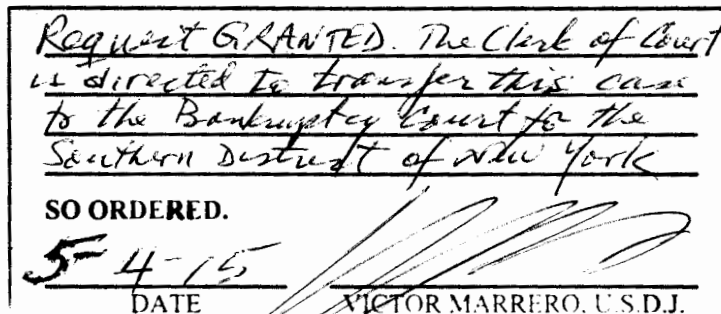 Request GRANTED. The Clerk of Court
is directed to transfer this case
to the Bankruptcy Court for the
Southern District of New York
SO ORDERED.
5-4-15
DATE VICTOR MARRERO, U.S.D.J.